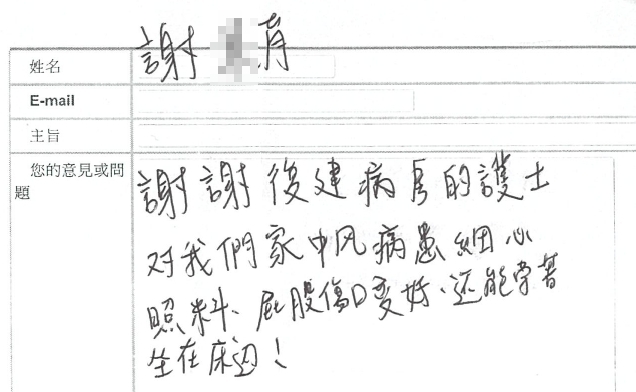 謝 育
姓名
E-mail
主旨
您的意見或問
題
謝謝後建病房的護士
对我們家中风病患細心
照料、屁股傷口变好、还能常著
坐在床边!